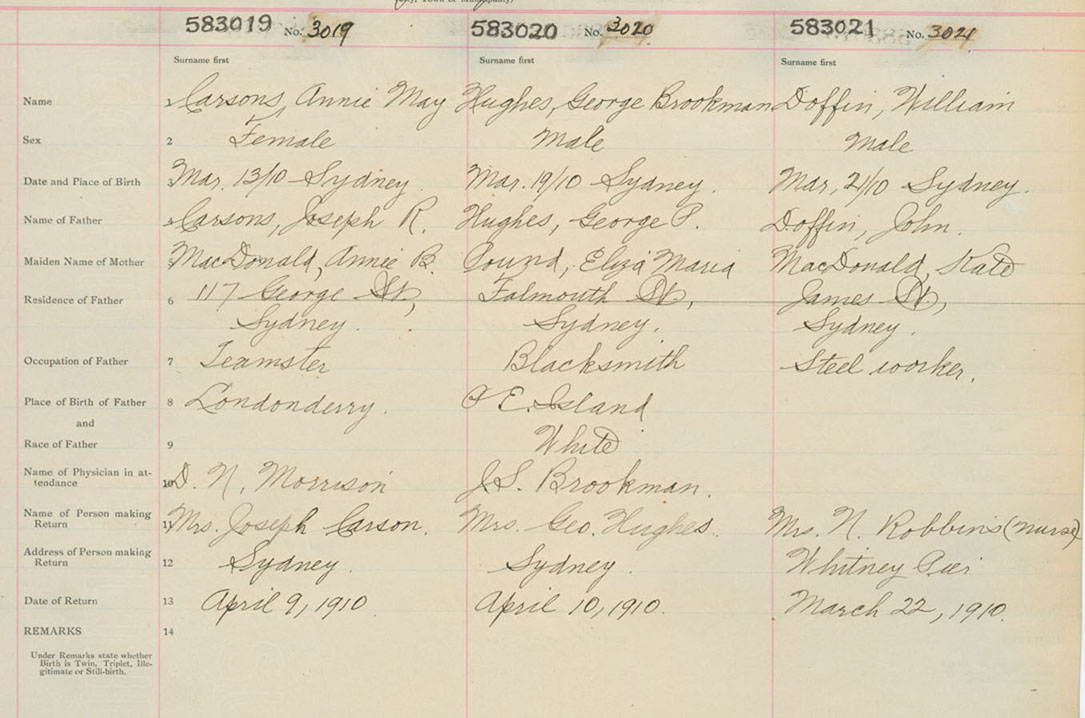 (City, Town or Municipality)
583019 No. 3019 583020 No. 3020 583021 No. 3021
Surname first Surname first Surname first
Name 1 Carsons, Annie May Hughes, George Brookman Doffin, William
Sex 2 Female Male Male
Date and Place of Birth 3 Mar. 13/10 Sydney. Mar. 19/10 Sydney. Mar, 21/10 Sydney.
Name of Father 4 Carsons, Joseph R. Hughes, George P. Doffin, John.
Maiden Name of Mother 5 MacDonald, Annie B. Pound, Eliza Maria MacDonald, Kate
Residence of Father 6 117 George St, Falmouth St, James St,
Sydney. Sydney. Sydney.
Occupation of Father 7 Teamster Blacksmith Steel worker.
Place of Birth of Father 8 Londonderry. P E. Island
and
Race of Father 9 White
Name of Physician in at-
tendance 10 D. N. Morrison J.S. Brookman.
Name of Person making
Return 11 Mrs. Joseph Carson. Mrs. Geo. Hughes. Mrs. N. Robbins (nurse)
Address of Person making
Return 12 Sydney. Sydney. Whitney Pier
Date of Return 13 April 9, 1910. April 10, 1910. March 22, 1910.
REMARKS 14
Under Remarks state whether
Birth is Twin, Triplet, Ille-
gitimate or Still-birth.